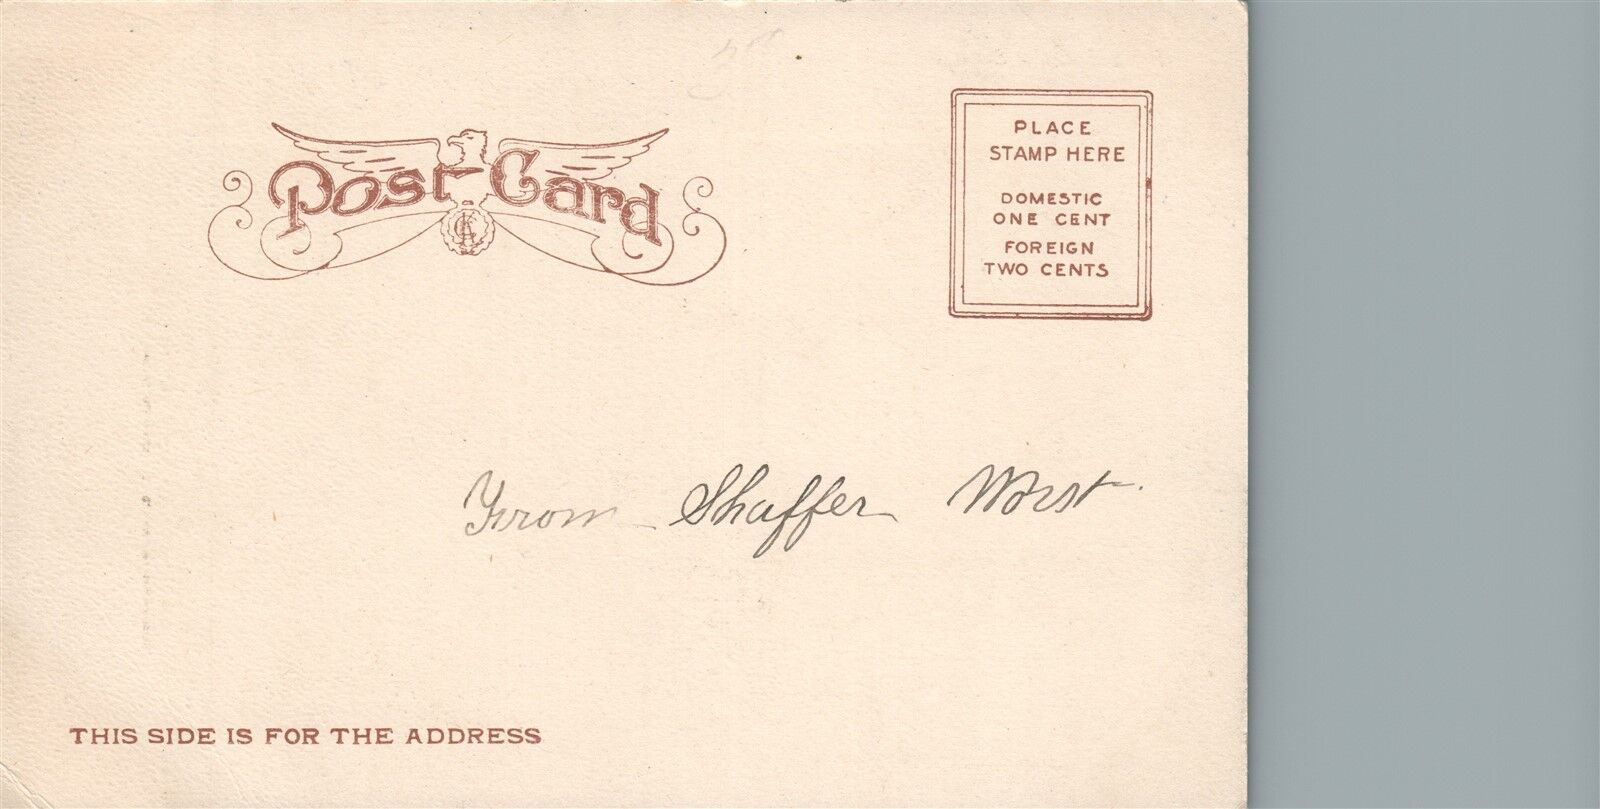 Post Card
PLACE
STAMP HERE
DOMESTIC
ONE CENT
FOREIGN
TWO CENTS
From Shaffer Worst
THIS SIDE IS FOR THE ADDRESS